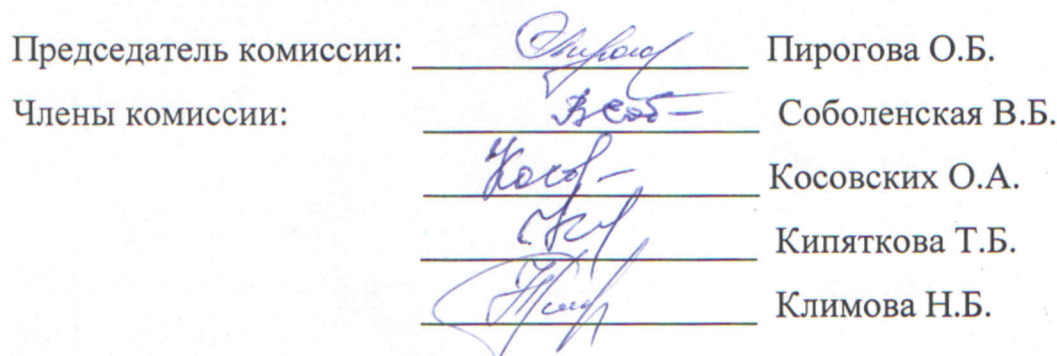 Председатель комиссии: Пирогова О.Б.
Члены комиссии: Соболенская В.Б.
Косовских О.А.
Кипяткова Т.Б.
Климова Н.Б.